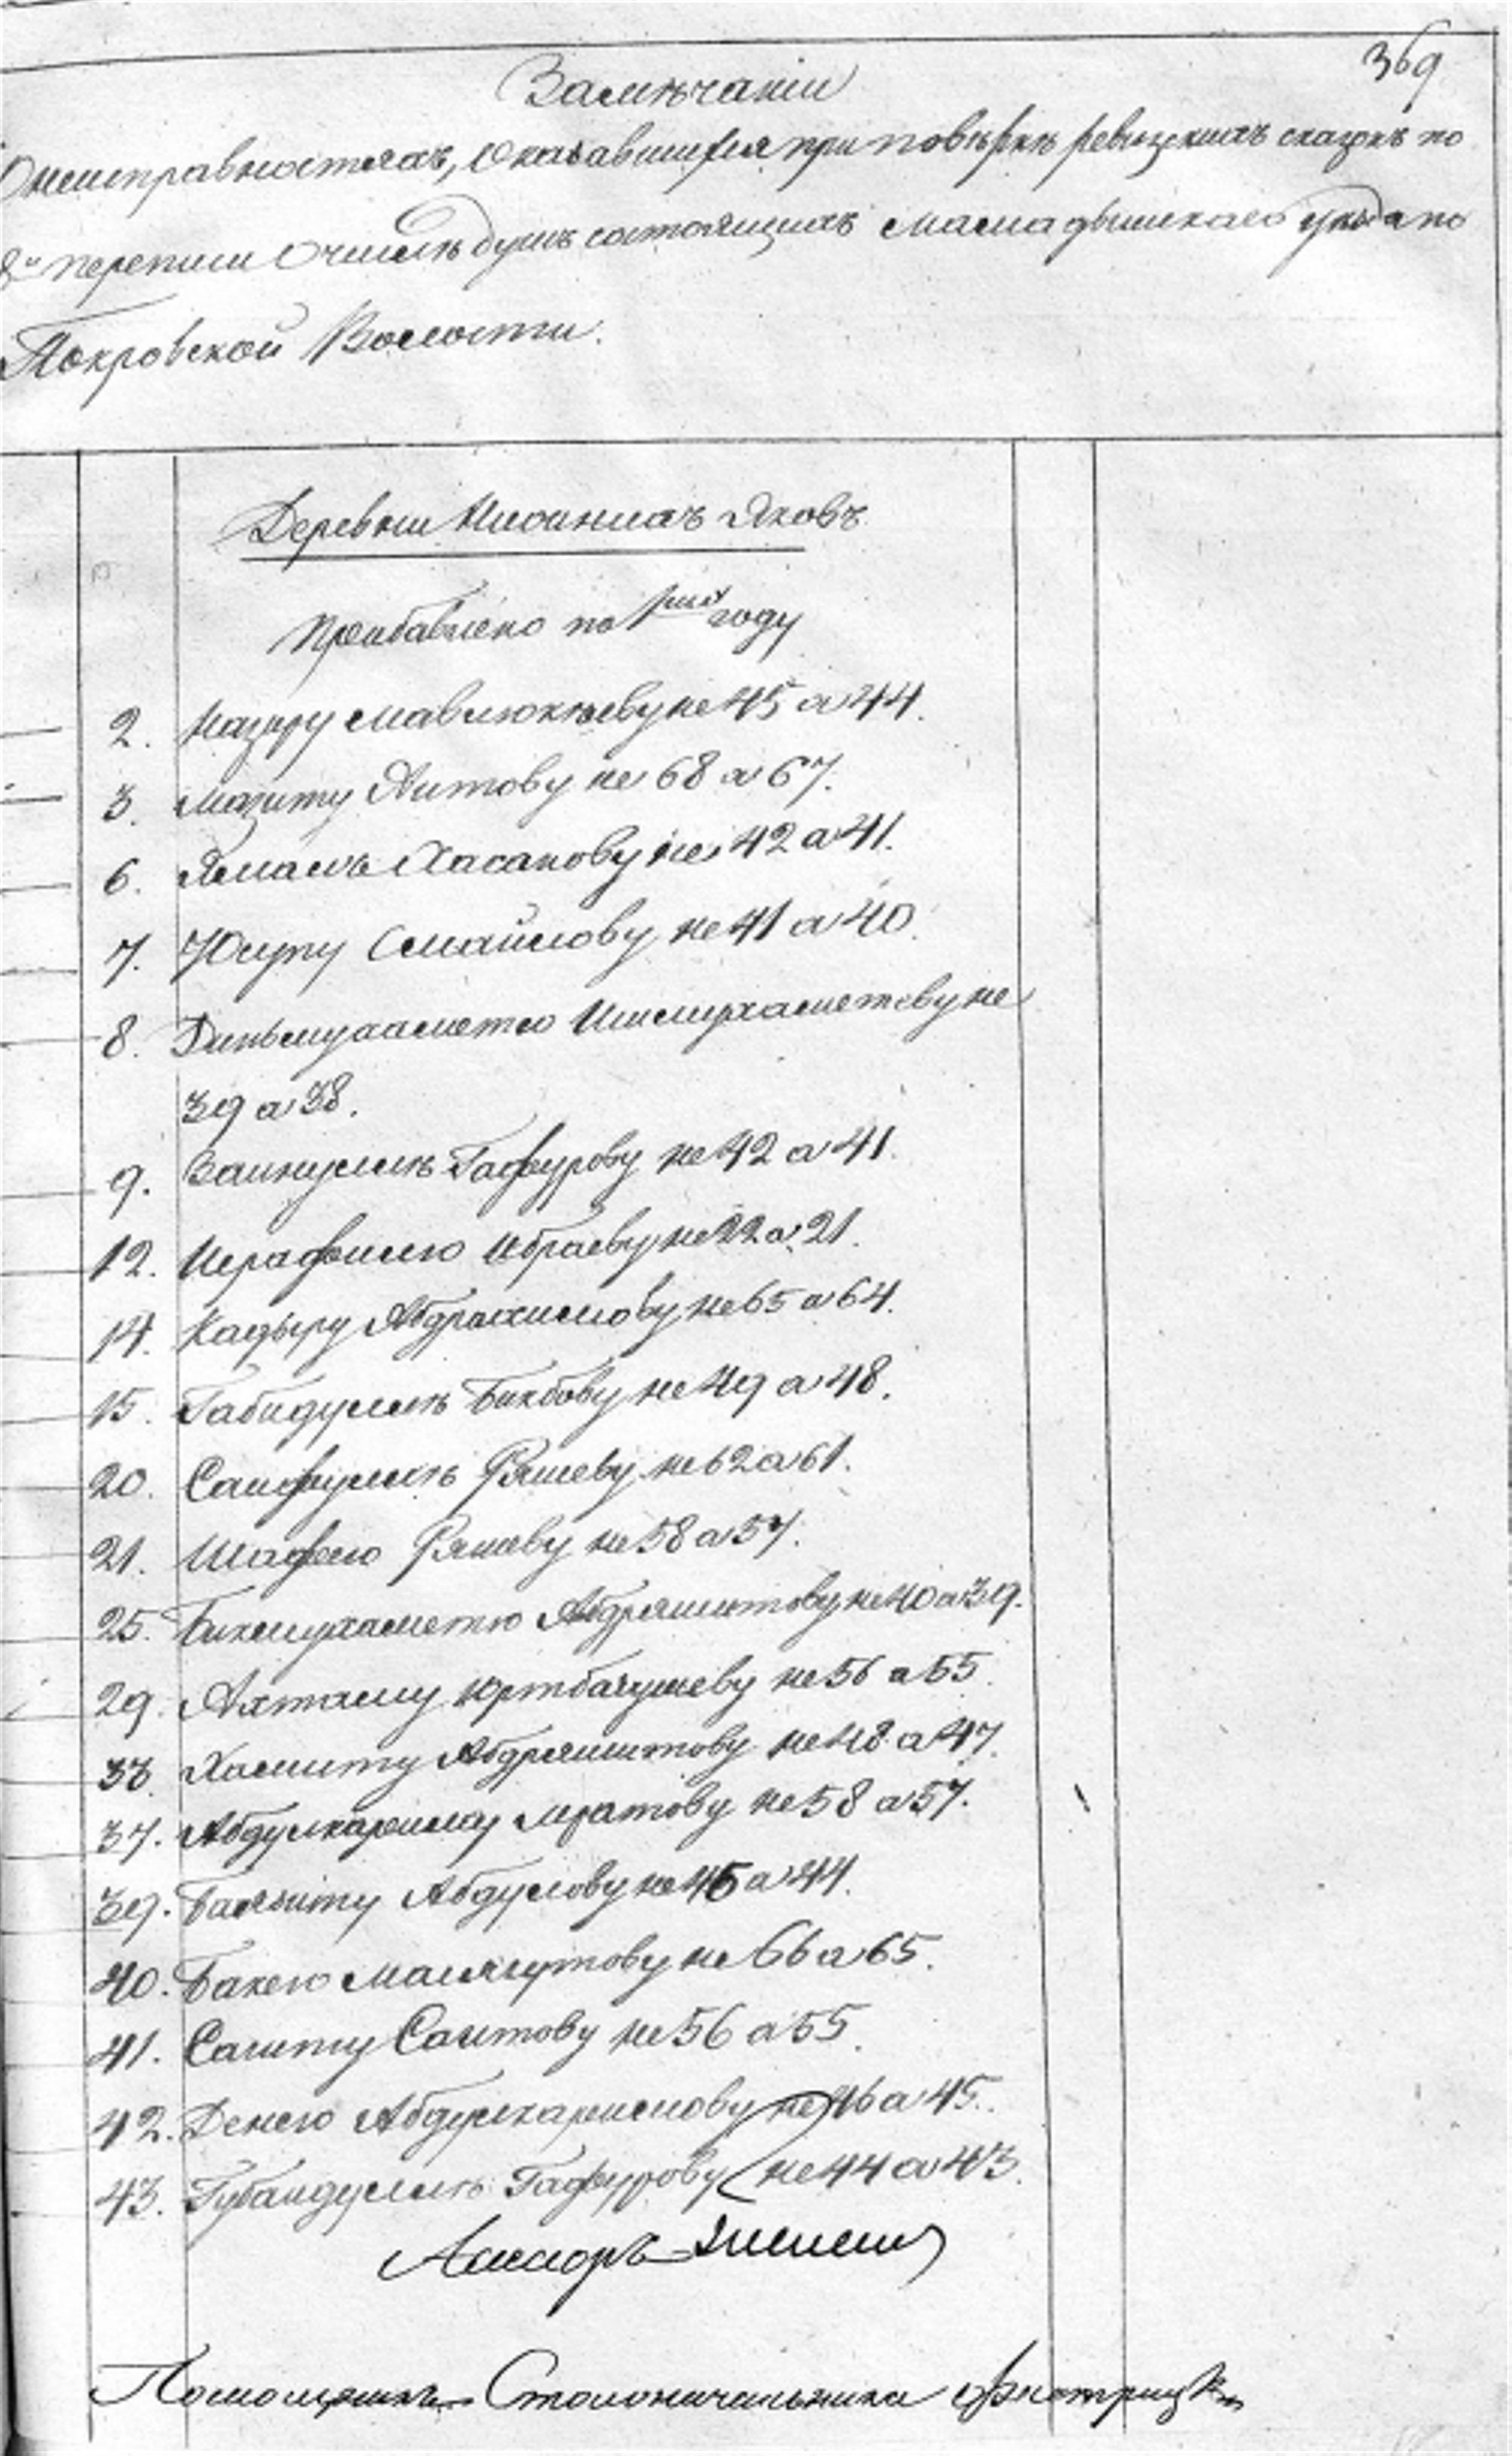 369
Замѣчаніи
О неисправностяхъ, оказавшихся при повѣркѣ ревизскихъ сказокъ по
8й переписи о числѣ душъ состоящихъ Мамадышскаго уѣзда по
Покровской Волости.
Деревни Нижнихъ Яковъ
Прибавлено по 1 году
2. Назиру Мавлюкѣеву не 45 а 44.
3. Мазиту Аитову не 68 а 67.
6. Хасанову не 42 а 41.
7. Юсупу Смайлову не 41 а 40.
8. Диньмухаметю Ишмухаметеву не
39 а 38.
9. Заинуллѣ Гафурову не 42 а 41.
12. Исрафилю Ибраеву не 22 а 21.
14. Кадыру Абдрахимову не 65 а 64.
15. Габидуллѣ Бикбову не 49 а 48.
20. Саифуллѣ Ряшеву не 62 а 61.
21. Шафею Ряшеву не 58 а 57.
25. Бикмухаметю Абдряшитову не 40 а 39.
29. Ахтаму не 56 а 55.
33. Хамиту Абдряшитову не 48 а 47.
37. Абдулкариму Мратову не 58 а 57.
39. Баязиту Абдулову не 45 а 44.
40. Бакею Малягутову не 66 а 65.
41. Сагиту Саитову не 56 а 55.
42. Денею Абдулкаримову не 46 а 45.
43. Губаидуллѣ Гафурову не 44 а 43.
Ассесоръ
Помощникъ Столоначальника